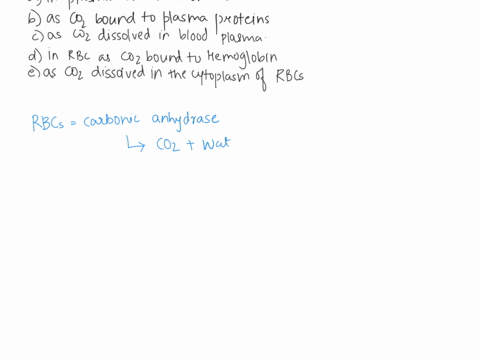 b) as CO2 bound to plasma proteins
c) as CO2 dissolved in blood plasma.
d) in RBC as CO2 bound to Hemoglobin
e) as CO2 dissolved in the cytoplasm of RBCs
RBCs = carbonic anhydrase
↳ CO2 + Wat